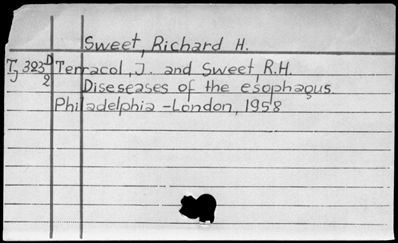 Sweet, Richard H.
Tj 323 D Terracol, J. and Sweet, R.H.
2 Diseseases of the esophagus.
Philadelphia - London, 1958